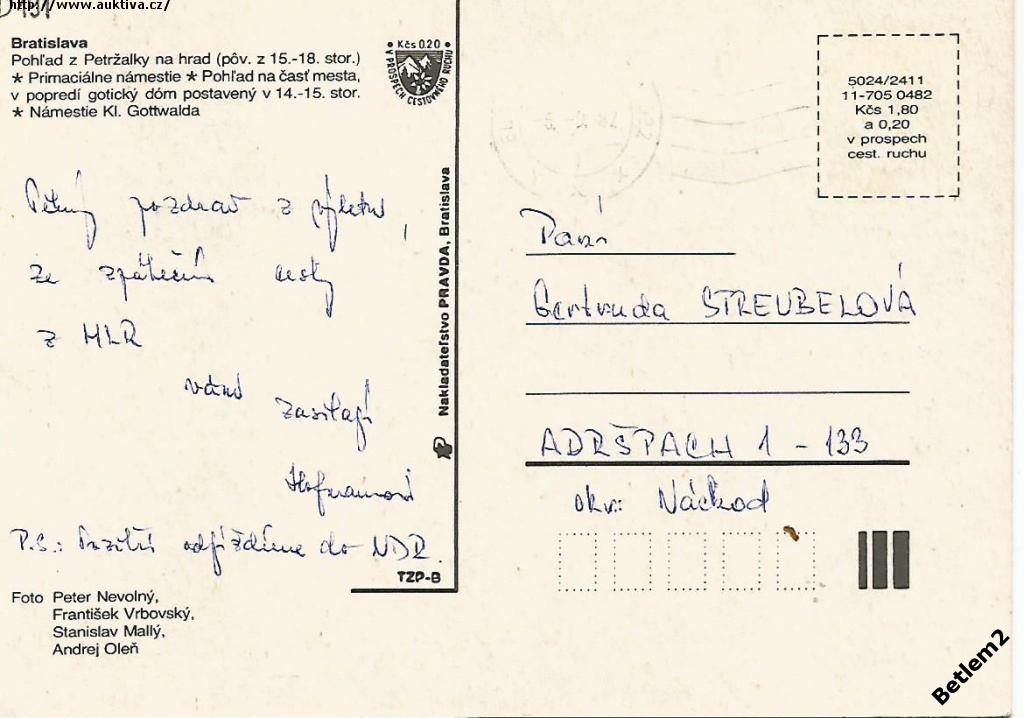 http://www.auktiva.cz/
Bratislava
Pohľad z Petržalky na hrad (pôv. z 15.-18. stor.)
★ Primaciálne námestie ★ Pohľad na časť mesta,
v popredí gotický dóm postavený v 14.-15. stor.
★ Námestie Kl. Gottwalda
• Kčs 0.20 •
V PROSPECH CESTOVNÉHO RUCHU
Pěkný pozdrav z výletu,
ze zpáteční cesty
z MLR
vám zasílají
Hofmanovi
P.S.: Pozítří odjíždíme do NDR.
TZP-B
Foto Peter Nevolný,
František Vrbovský,
Stanislav Mallý,
Andrej Oleň
Nakladateľstvo PRAVDA, Bratislava
5024/2411
11-705 0482
Kčs 1,80
a 0,20
v prospech
cest. ruchu
Paní
Gertruda STREUBELOVÁ
ADRŠPACH 1 - 133
okr.: Náchod
Betlem2